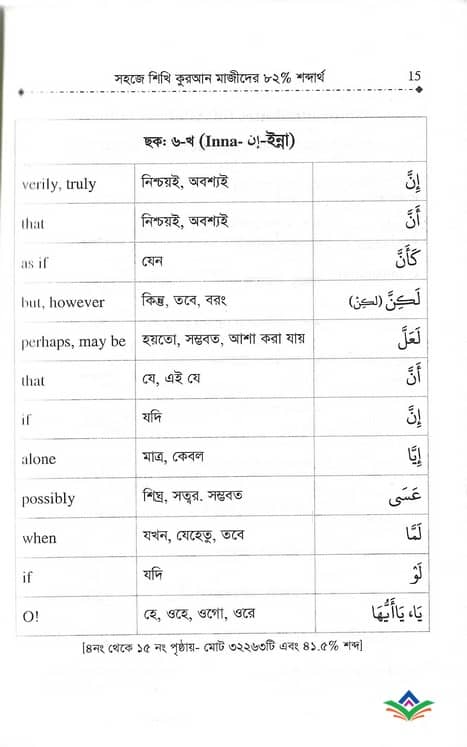 সহজে শিখি কুরআন মাজীদের ৮২% শব্দার্থ 15
ছক: ৬-খ (Inna- إن-ইন্না)
verily, truly নিশ্চয়ই, অবশ্যই إِنَّ
that নিশ্চয়ই, অবশ্যই أَنَّ
as if যেন كَأَنَّ
but, however কিন্তু, তবে, বরং لَكِنَّ (لكِن)
perhaps, may be হয়তো, সম্ভবত, আশা করা যায় لَعَلَّ
that যে, এই যে أَنَّ
if যদি إِنَّ
alone মাত্র, কেবল إِيَّا
possibly শিঘ্র, সত্বর. সম্ভবত عَسَى
when যখন, যেহেতু, তবে لَمَّا
if যদি لَوْ
O! হে, ওহে, ওগো, ওরে يَاء يَاأَيُّهَا
[৪নং থেকে ১৫ নং পৃষ্ঠায়- মোট ৩২২৬৩টি এবং ৪১.৫% শব্দ]